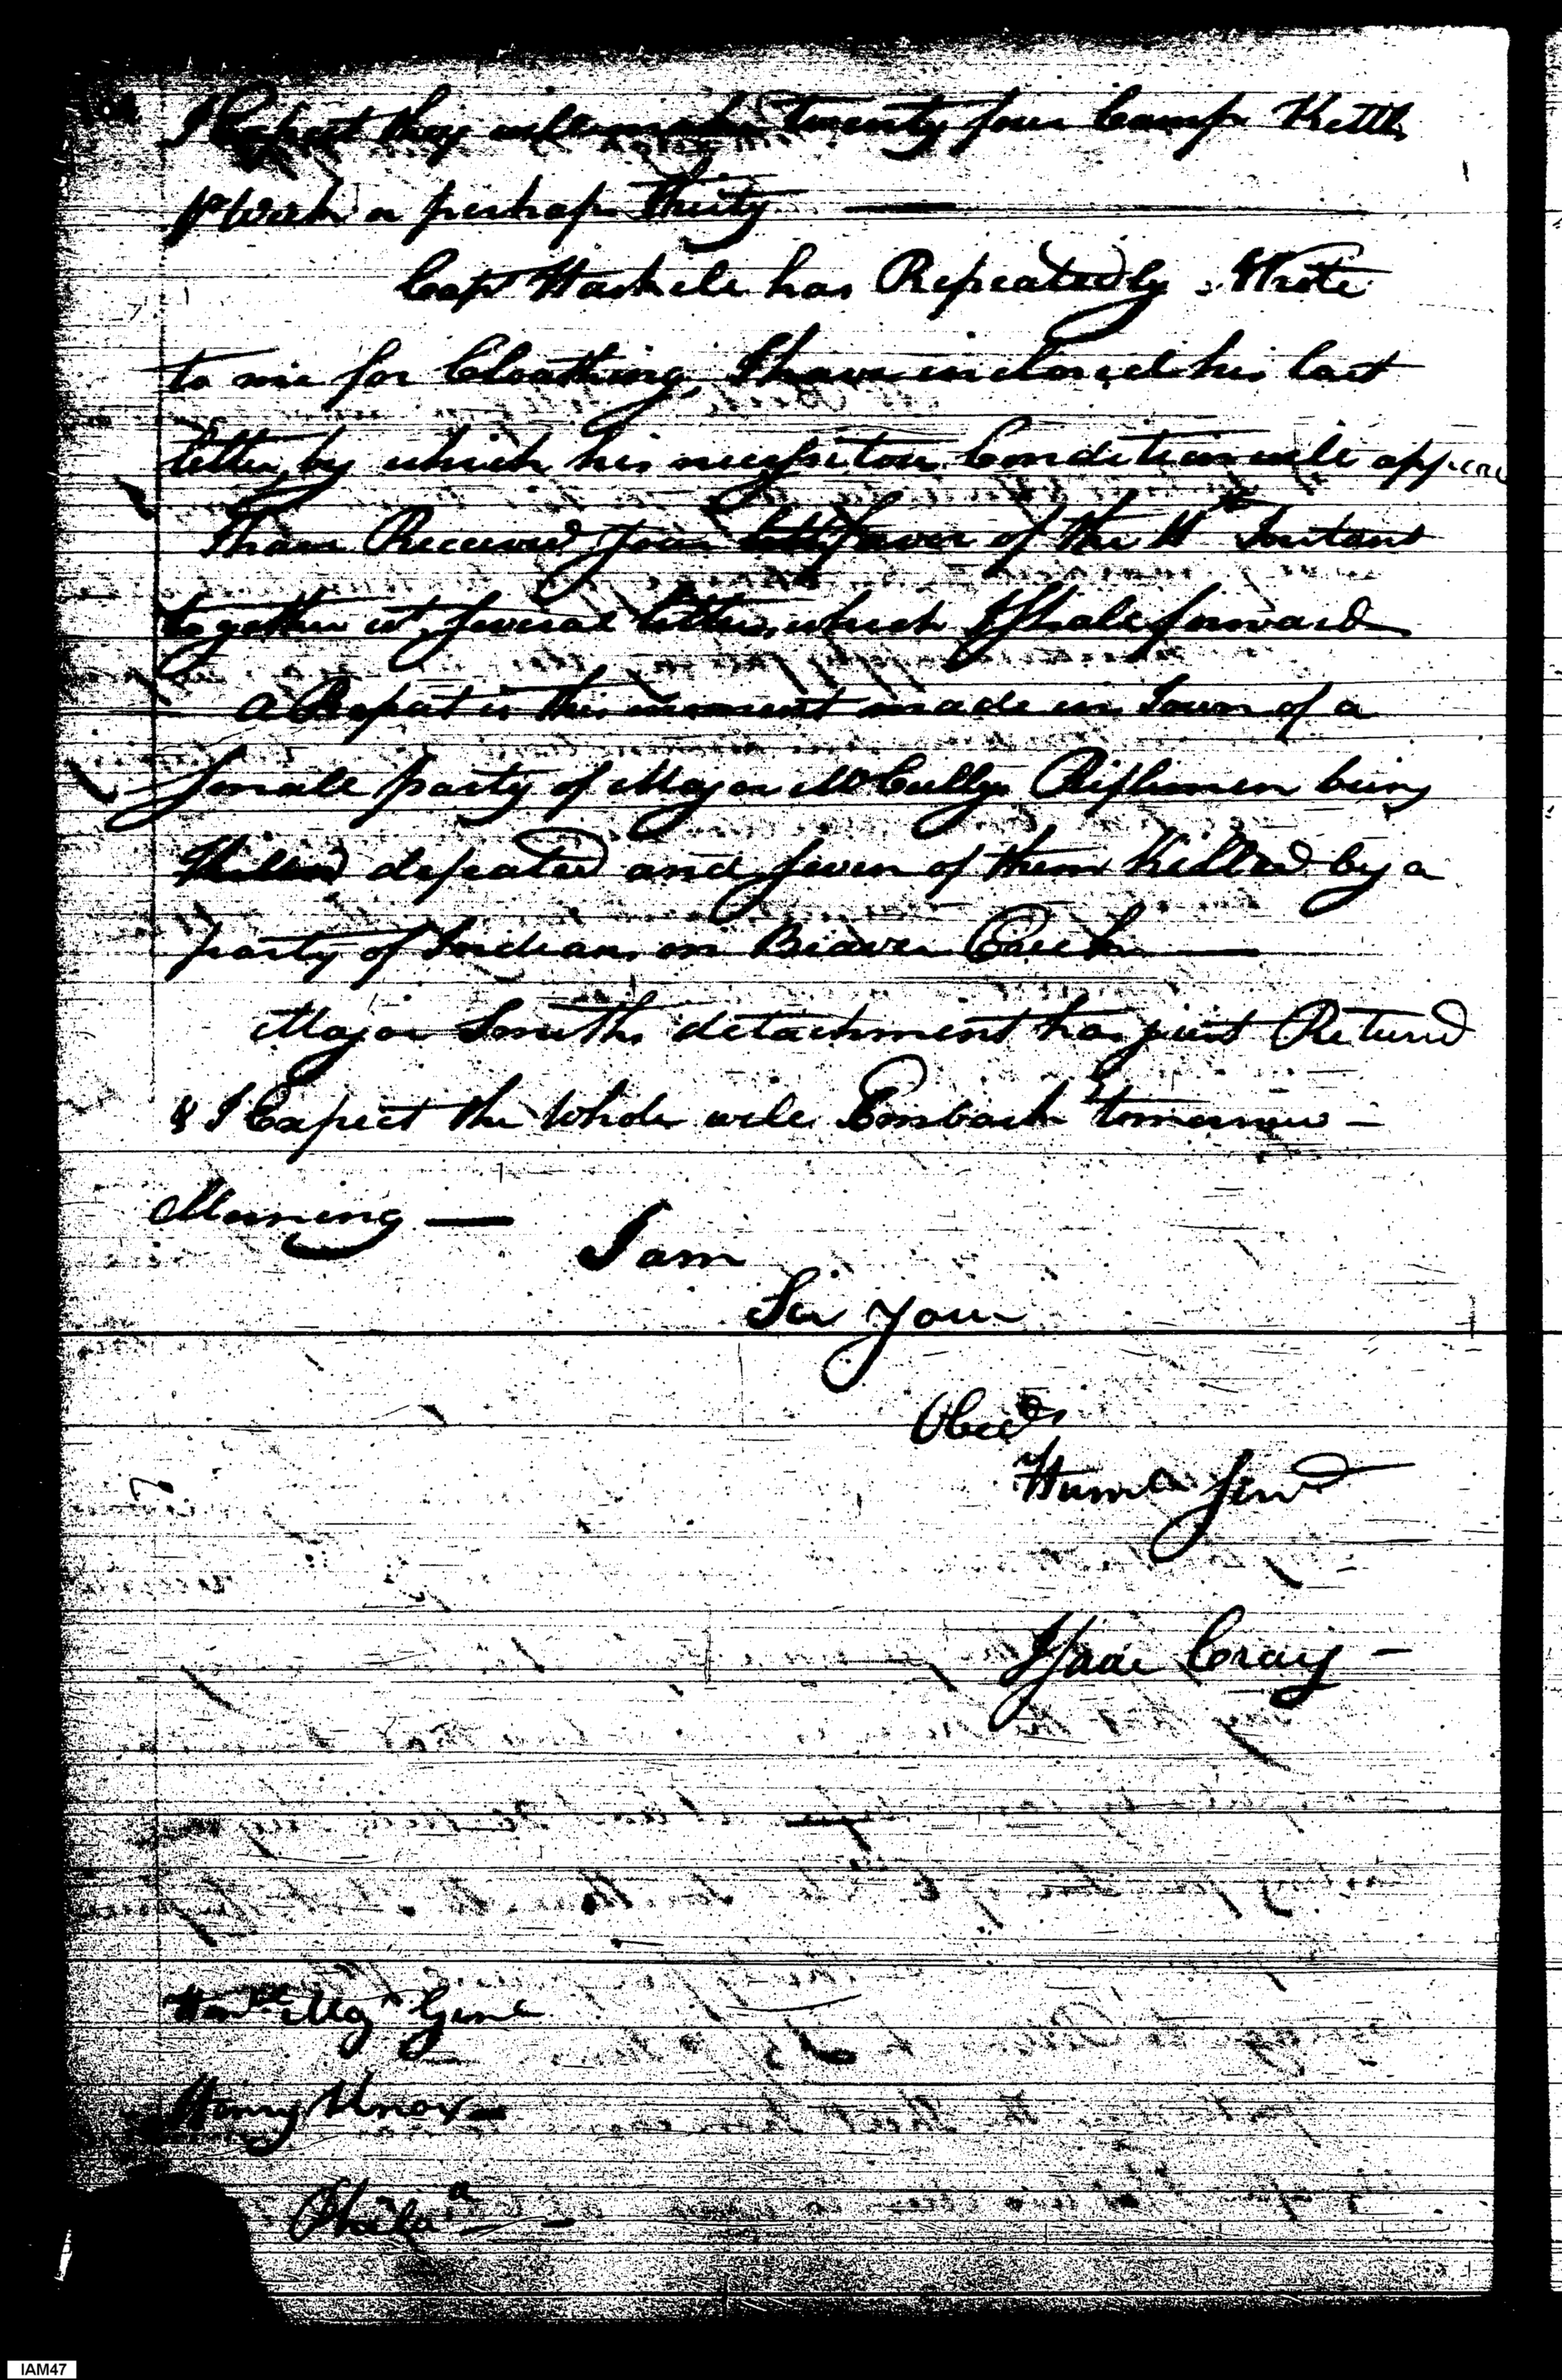 I Expect they will make twenty four Camp Kettles
pr Week or perhaps Thirty —
Capt Haskell has Repeatedly Wrote
to me for Cloathing, I have inclosed his last
letter, by which his necessitous Condition will appear
I have Received your favor of the Instant
together wt several letters, which I shall forward
a Report is this moment made in Town of a
small party of Major McCullys Riflemen being
Killed defeated and seven of them Killed by a
party of Indians on Beaver Creek —
Major Smiths detachment has just Returnd
& I Expect the whole will Embark tomorrow –
Morning —
I am
Sir your
Obedt
Humle Servt
Isaac Craig –
Honble Majr Genl
Henry Knox –
Philaa — –
IAM47